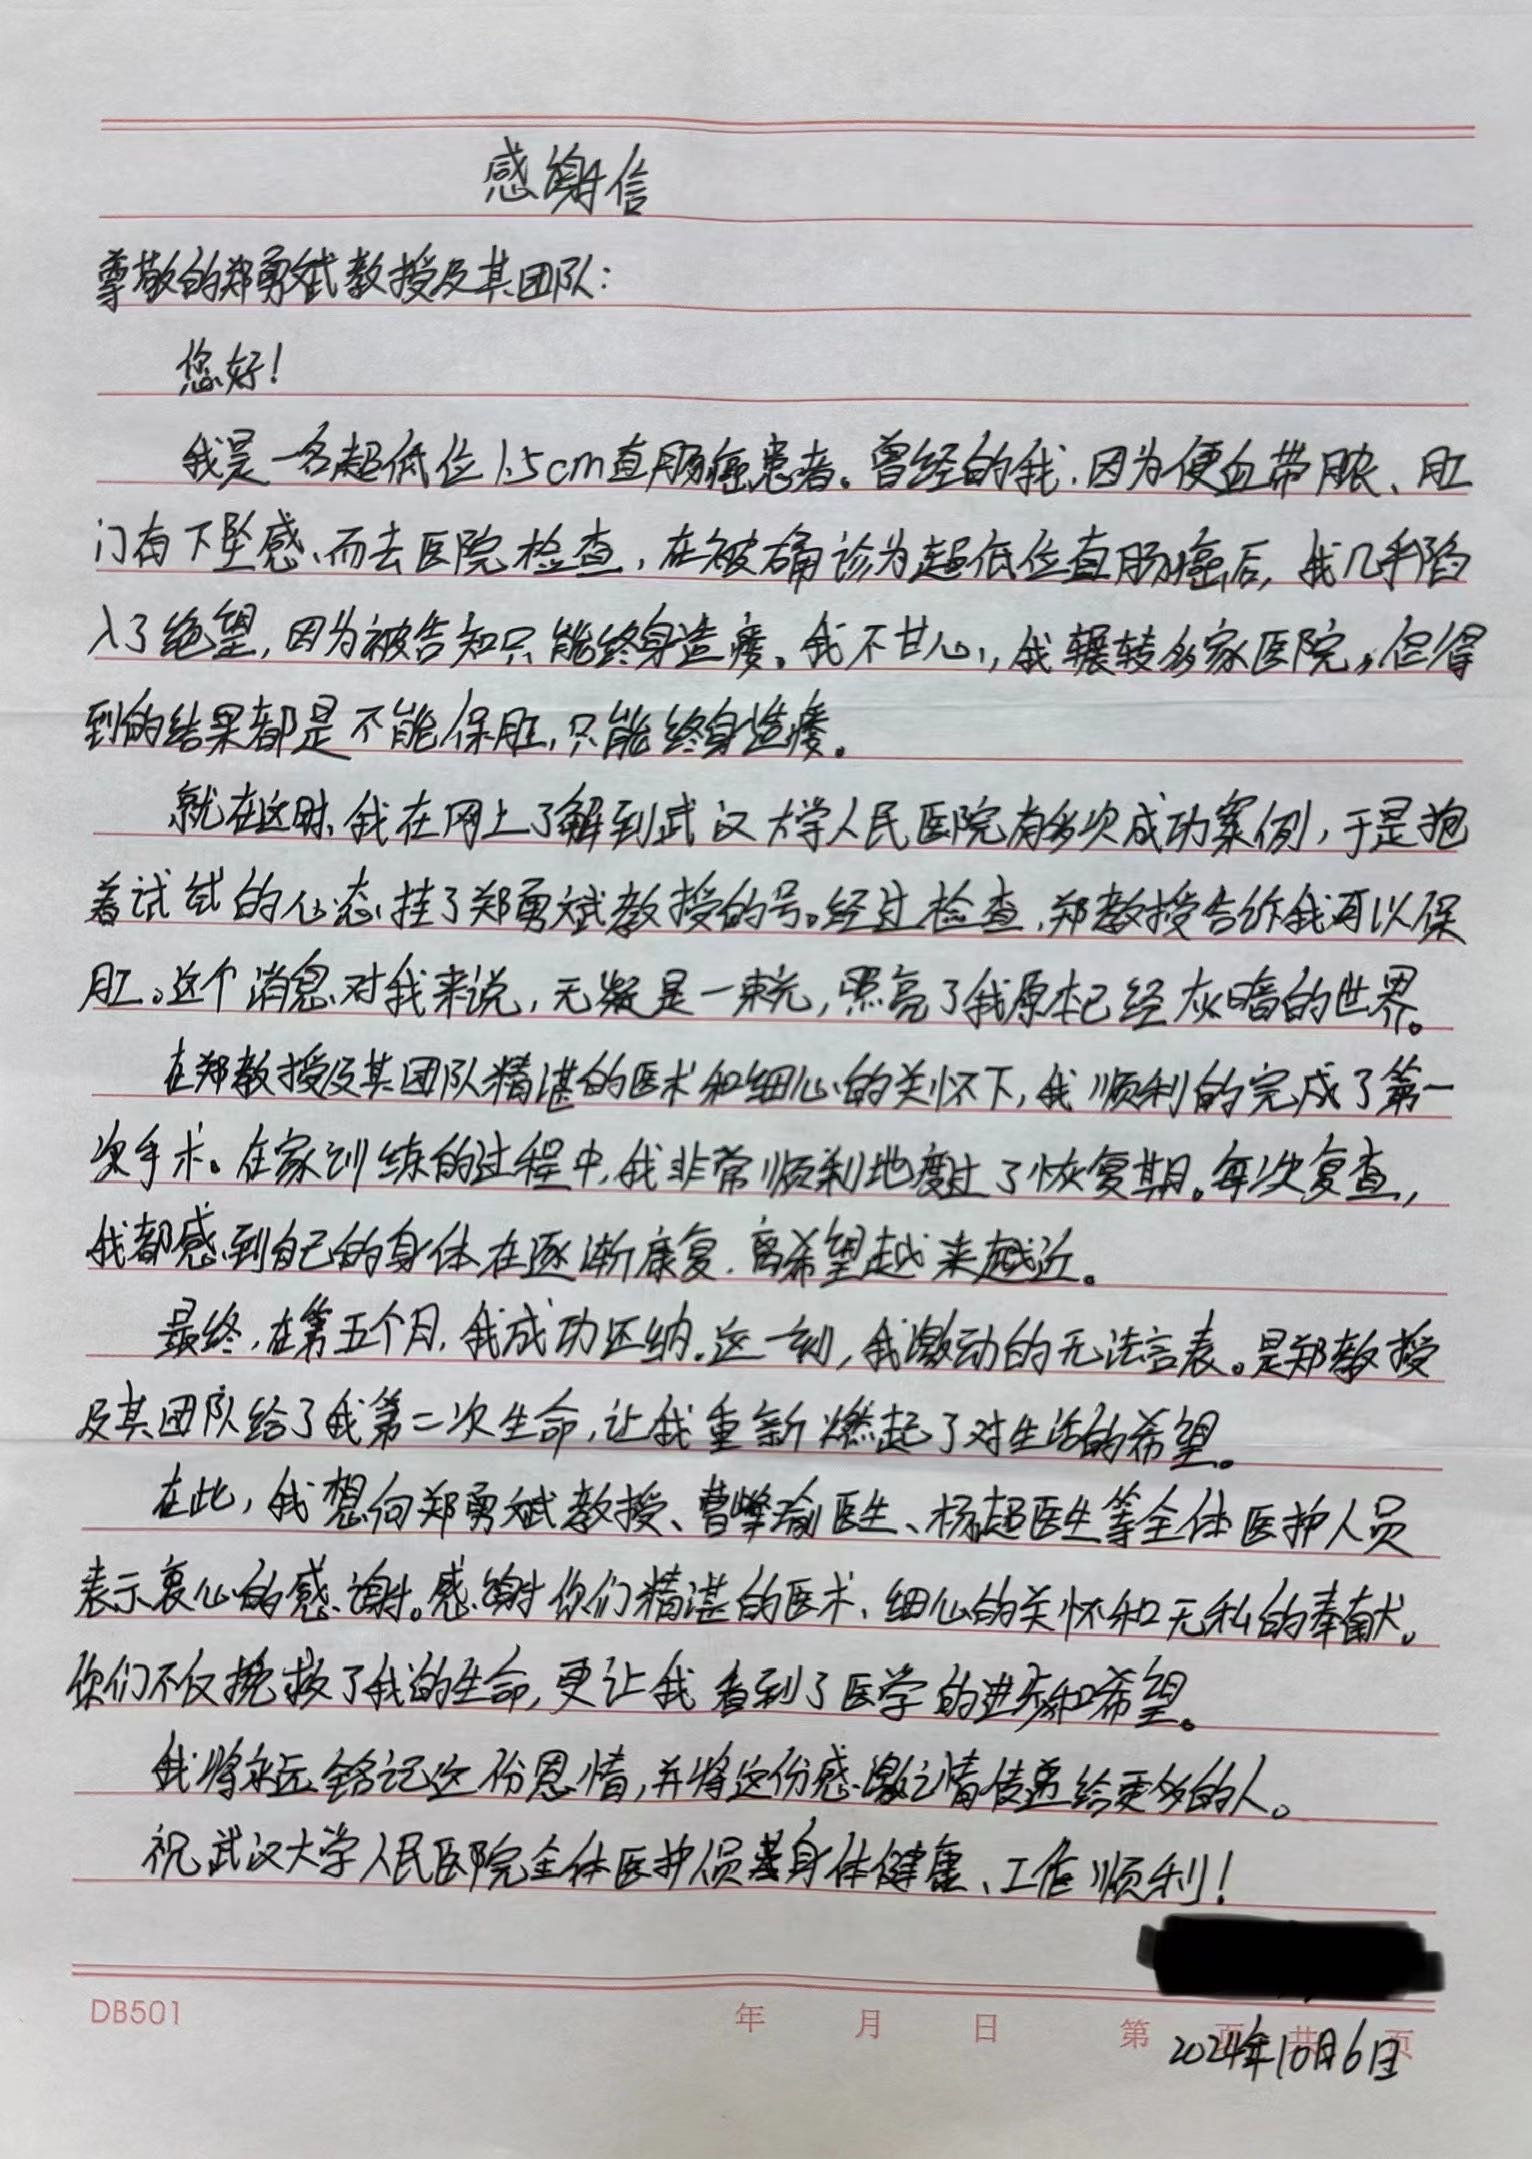 感谢信
尊敬的郑勇斌教授及其团队：
您好！
我是一名超低位1.5cm直肠癌患者。曾经的我，因为便血带脓、肛
门有下坠感、而去医院检查，在被确诊为超低位直肠癌后，我几乎陷
入了绝望，因为被告知只能终身造瘘。我不甘心，我辗转多家医院，但得
到的结果都是不能保肛，只能终身造瘘。
就在这时，我在网上了解到武汉大学人民医院有多次成功案例，于是抱
着试试的心态，挂了郑勇斌教授的号。经过检查，郑教授告诉我可以保
肛。这个消息对我来说，无疑是一束光，照亮了我原本已经灰暗的世界。
在郑教授及其团队精湛的医术和细心的关怀下，我顺利的完成了第一
次手术。在家训练的过程中，我非常顺利地度过了恢复期。每次复查，
我都感到自己的身体在逐渐康复，离希望越来越近。
最终，在第五个月，我成功还纳。这一刻，我激动的无法言表。是郑教授
及其团队给了我第二次生命，让我重新燃起了对生活的希望。
在此，我想向郑勇斌教授、曹峰瑜医生、杨超医生等全体医护人员
表示衷心的感谢。感谢你们精湛的医术、细心的关怀和无私的奉献。
你们不仅挽救了我的生命，更让我看到了医学的进步和希望。
我将永远铭记这份恩情，并将这份感激之情传递给更多的人。
祝武汉大学人民医院全体医护员身体健康、工作顺利！
DB501 年 月 日 第 页 共 页
2024年10月6日